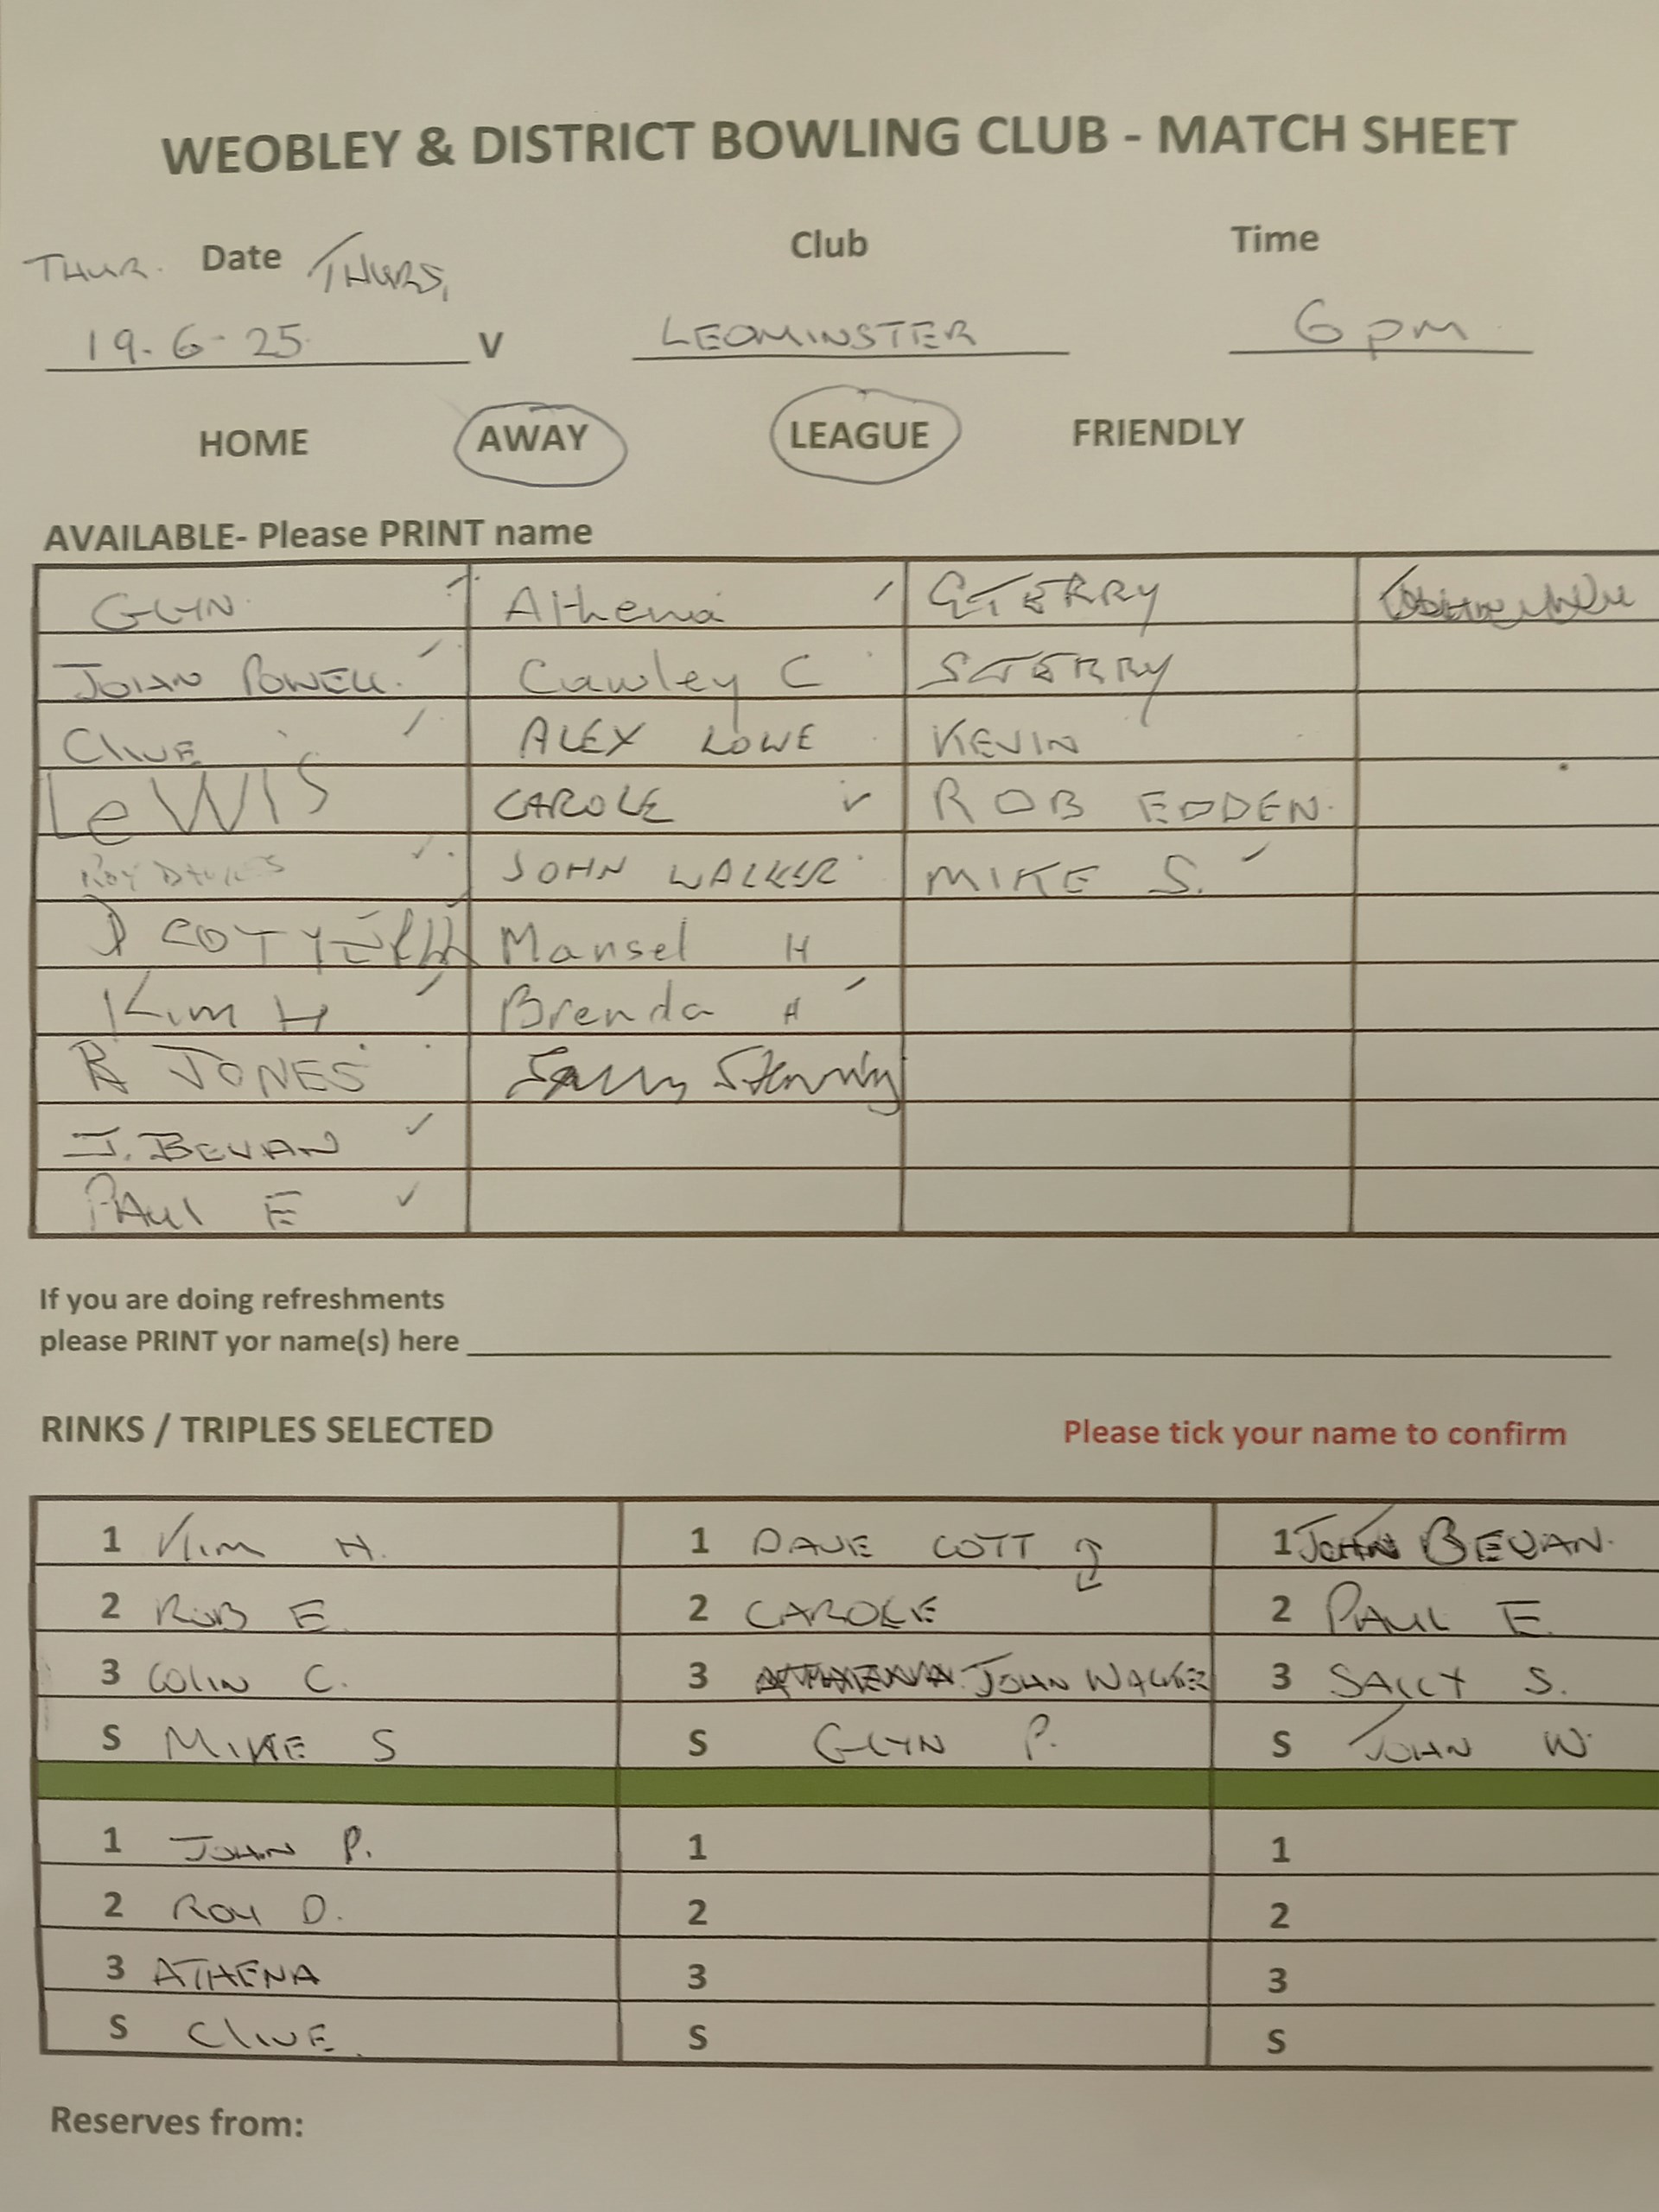 WEOBLEY & DISTRICT BOWLING CLUB - MATCH SHEET
THUR. Date THURS, Club Time
19-6-25 V LEOMINSTER 6pm
HOME AWAY LEAGUE FRIENDLY
AVAILABLE- Please PRINT name
GLYN Athena G TERRY
JOHN POWELL Cawley C S TERRY
CLIVE ALEX LOWE KEVIN
LeWIS CAROLE ROB EDDEN
ROY DAVIES JOHN WALKER MIKE S.
D Mansel H
Kim H Brenda H
R JONES Sally
J. BEVAN
PAUL E
If you are doing refreshments
please PRINT yor name(s) here
RINKS / TRIPLES SELECTED Please tick your name to confirm
1 Kim H. 1 DAVE COTT 1 JOHN BEVAN.
2 ROB E. 2 CAROLE 2 PAUL E.
3 COLIN C. 3 ATHENA JOHN WALKER 3 SALLY S.
S MIKE S S GLYN P. S JOHN W.
1 JOHN P. 1 1
2 ROY D. 2 2
3 ATHENA 3 3
S CLIVE S S
Reserves from: